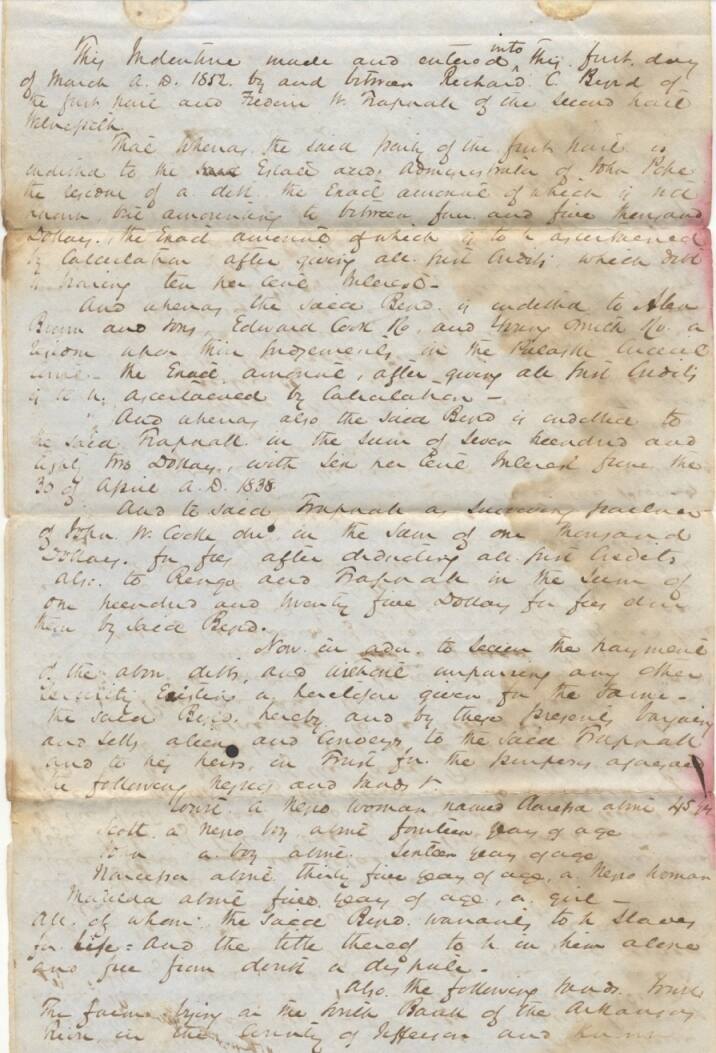 This Indenture made and entered into this first day
of March A. D. 1852. by and between Richard C. Byrd of
the first part and Frederic W. Trapnall of the second part
Witnesseth
That whereas the said party of the first part is
indebted to the Estate and Administrator of John Pope
the residue of a debt the Exact amount of which is not
known, but amounting to between four and five thousand
Dollars, the Exact amount of which is to be ascertained
by Calculation after giving all just Credits which debt
is bearing ten per Cent Interest -
And whereas the said Byrd is indebted to
Brown and Sons, Edward Cook Co, and Smith Co. a
residue upon their Judgements in the Pulaski Circuit
Court - the Exact amount, after giving all just Credits
is to be ascertained by Calculation -
And whereas also the said Byrd is indebted to
the said Trapnall in the sum of Seven hundred and
Eighty two Dollars, with Six per Cent Interest from the
30 of April A. D. 1838
And to said Trapnall as surviving partner
of John W. Cocke due in the sum of one thousand
Dollars for fees after deducting all just Credits
also to Ringo and Trapnall in the sum of
one hundred and twenty five Dollars for fees due
them by said Byrd.
Now in order to secure the payment
of the above debts, and without impairing any other
security Existing or heretofore given for the same -
the said Byrd hereby and by these presents bargains
and sells aliens and Conveys, to the said Trapnall
and to his heirs, in Trust for the purposes aforesaid
the following Negroes and lands
towit a Negro woman named about 45 yrs
Scott a Negro boy about fourteen years of age
a boy about Sixteen years of age
Narcissa about thirty five years of age, a Negro woman
Matilda about five years of age, a girl -
all of whom the said Byrd warrants to be Slaves
for Life = and the title thereof to be in him alone
and free from doubt or dispute.
Also the following lands towit
The farm lying on the South Bank of the Arkansas
River in the County of Jefferson and